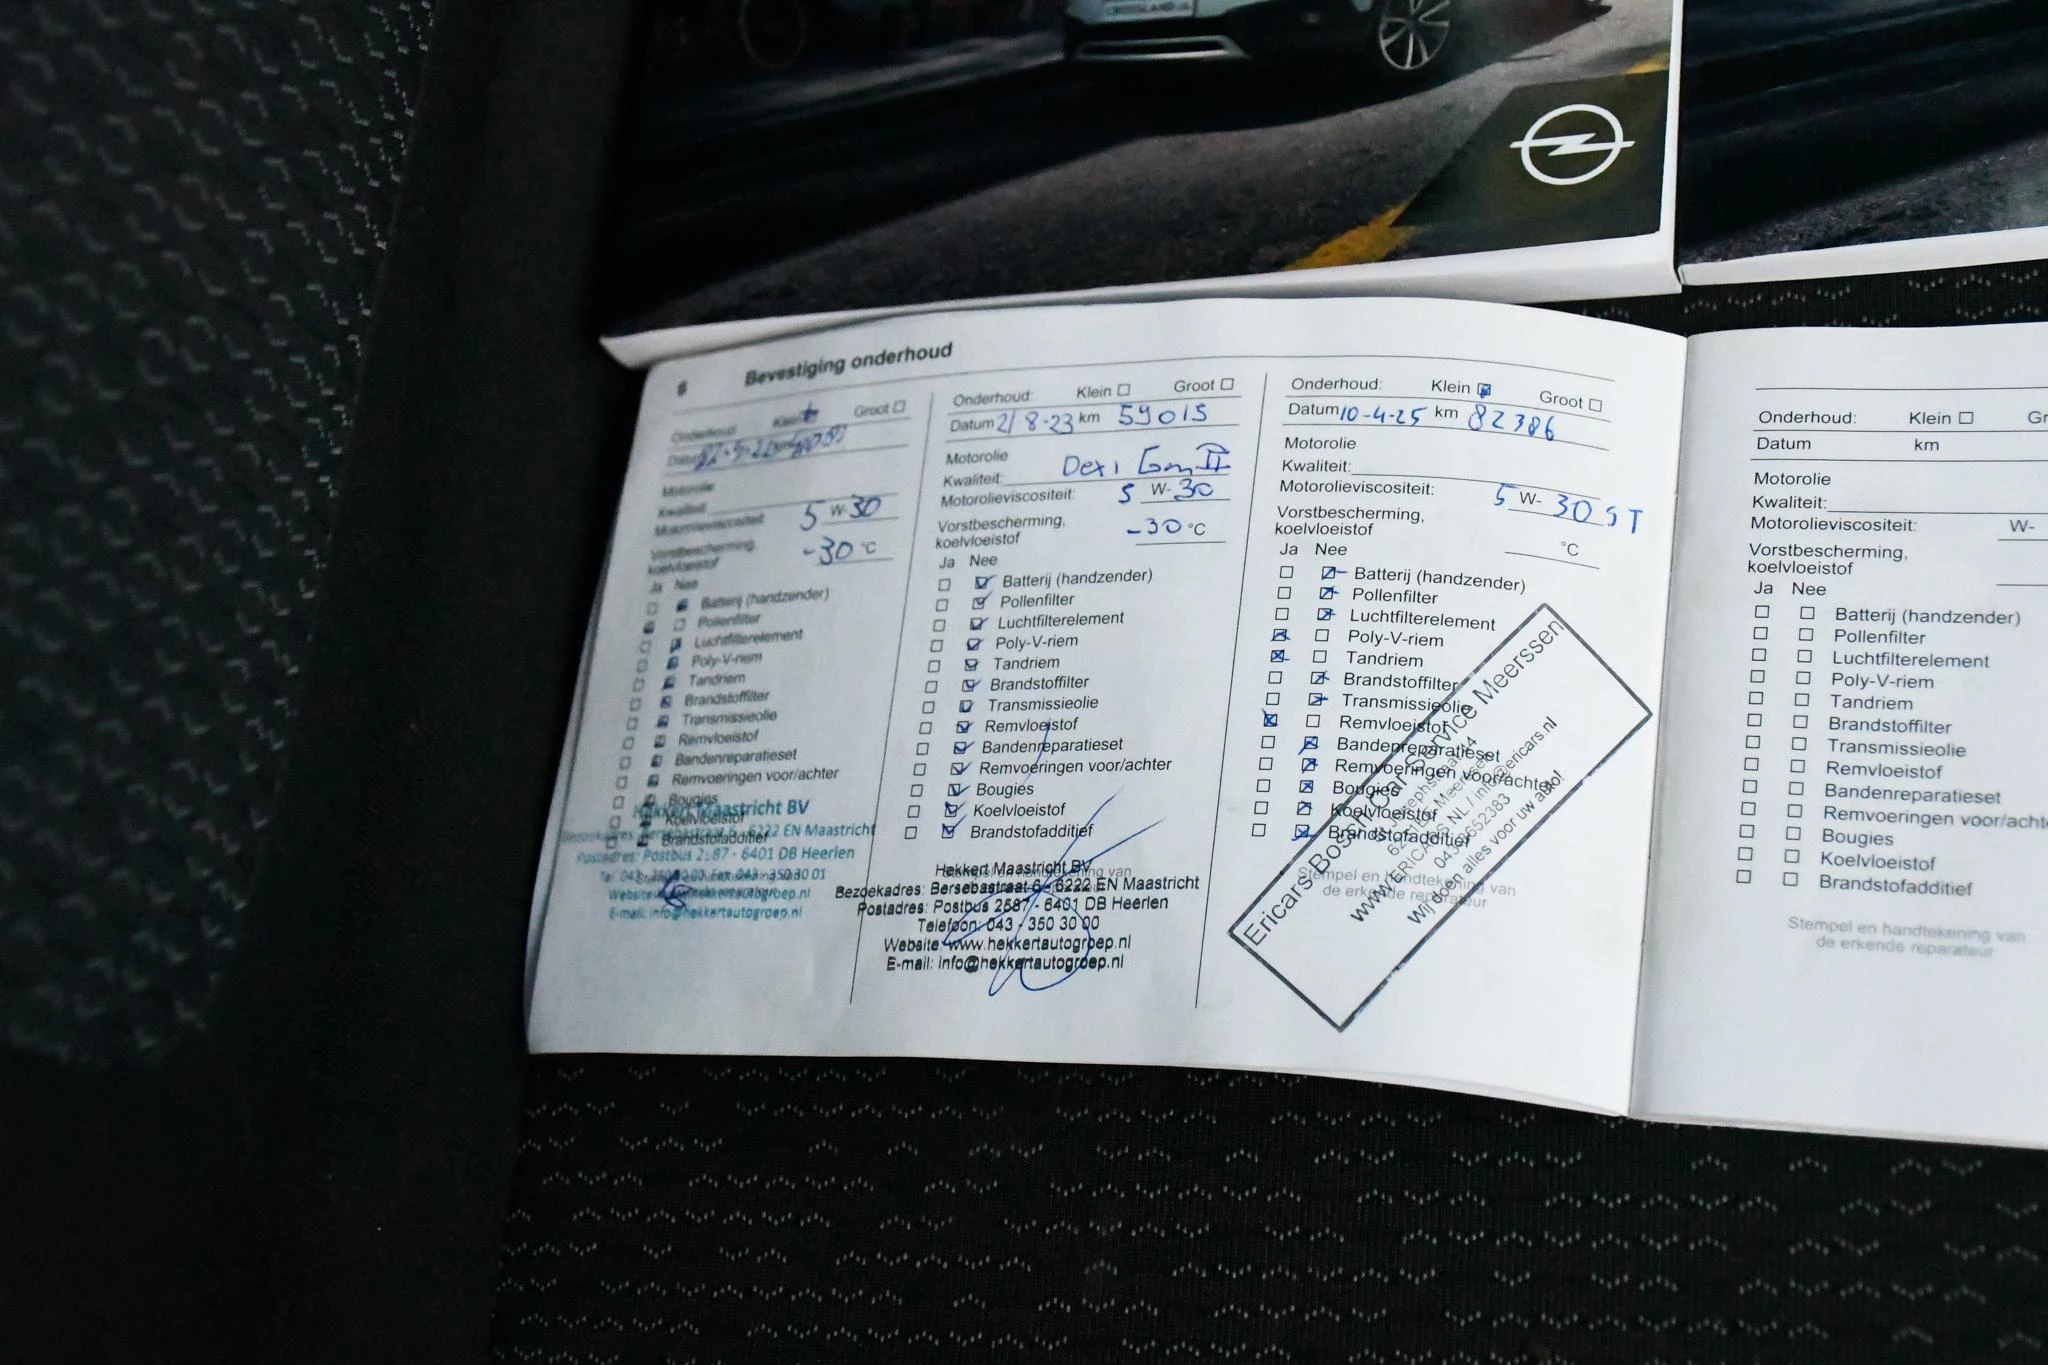 CROSSLAND
6 Bevestiging onderhoud
Onderhoud: Klein Groot
Datum km
Motorolie
Kwaliteit:
Motorolieviscositeit: 5 W- 30
Vorstbescherming,
koelvloeistof -30 °C
Ja Nee
Batterij (handzender)
Pollenfilter
Luchtfilterelement
Poly-V-riem
Tandriem
Brandstoffilter
Transmissieolie
Remvloeistof
Bandenreparatieset
Remvoeringen voor/achter
Bougies
Koelvloeistof
Brandstofadditief
Hekkert Maastricht BV
Bezoekadres: Bersebastraat 6 - 6222 EN Maastricht
Postadres: Postbus 2587 - 6401 DB Heerlen
Tel. 043 - 350 30 00 Fax 043 - 350 30 01
Website: www.hekkertautogroep.nl
E-mail: info@hekkertautogroep.nl
Onderhoud: Klein Groot
Datum 2/-8-23 km 59015
Motorolie
Kwaliteit: Dexi II
Motorolieviscositeit: 5 W- 30
Vorstbescherming,
koelvloeistof -30 °C
Ja Nee
Batterij (handzender)
Pollenfilter
Luchtfilterelement
Poly-V-riem
Tandriem
Brandstoffilter
Transmissieolie
Remvloeistof
Bandenreparatieset
Remvoeringen voor/achter
Bougies
Koelvloeistof
Brandstofadditief
Stempel en handtekening van
Hekkert Maastricht BV
Bezoekadres: Bersebastraat 6 - 6222 EN Maastricht
Postadres: Postbus 2587 - 6401 DB Heerlen
Telefoon: 043 - 350 30 00
Website: www.hekkertautogroep.nl
E-mail: info@hekkertautogroep.nl
Onderhoud: Klein Groot
Datum 10-4-25 km 82386
Motorolie
Kwaliteit:
Motorolieviscositeit: 5 W- 30 ST
Vorstbescherming,
koelvloeistof °C
Ja Nee
Batterij (handzender)
Pollenfilter
Luchtfilterelement
Poly-V-riem
Tandriem
Brandstoffilter
Transmissieolie
Remvloeistof
Bandenreparatieset
Remvoeringen voor/achter
Bougies
Koelvloeistof
Brandstofadditief
Stempel en handtekening van
de erkende reparateur
Ericars Bosch Car Service Meerssen
Meerssen
www.ERICARS.NL / info@ericars.nl
043-3652383
Wij doen alles voor uw auto!
Onderhoud: Klein
Datum km
Motorolie
Kwaliteit:
Motorolieviscositeit: W-
Vorstbescherming,
koelvloeistof
Ja Nee
Batterij (handzender)
Pollenfilter
Luchtfilterelement
Poly-V-riem
Tandriem
Brandstoffilter
Transmissieolie
Remvloeistof
Bandenreparatieset
Remvoeringen voor/achte
Bougies
Koelvloeistof
Brandstofadditief
Stempel en handtekening van
de erkende reparateur